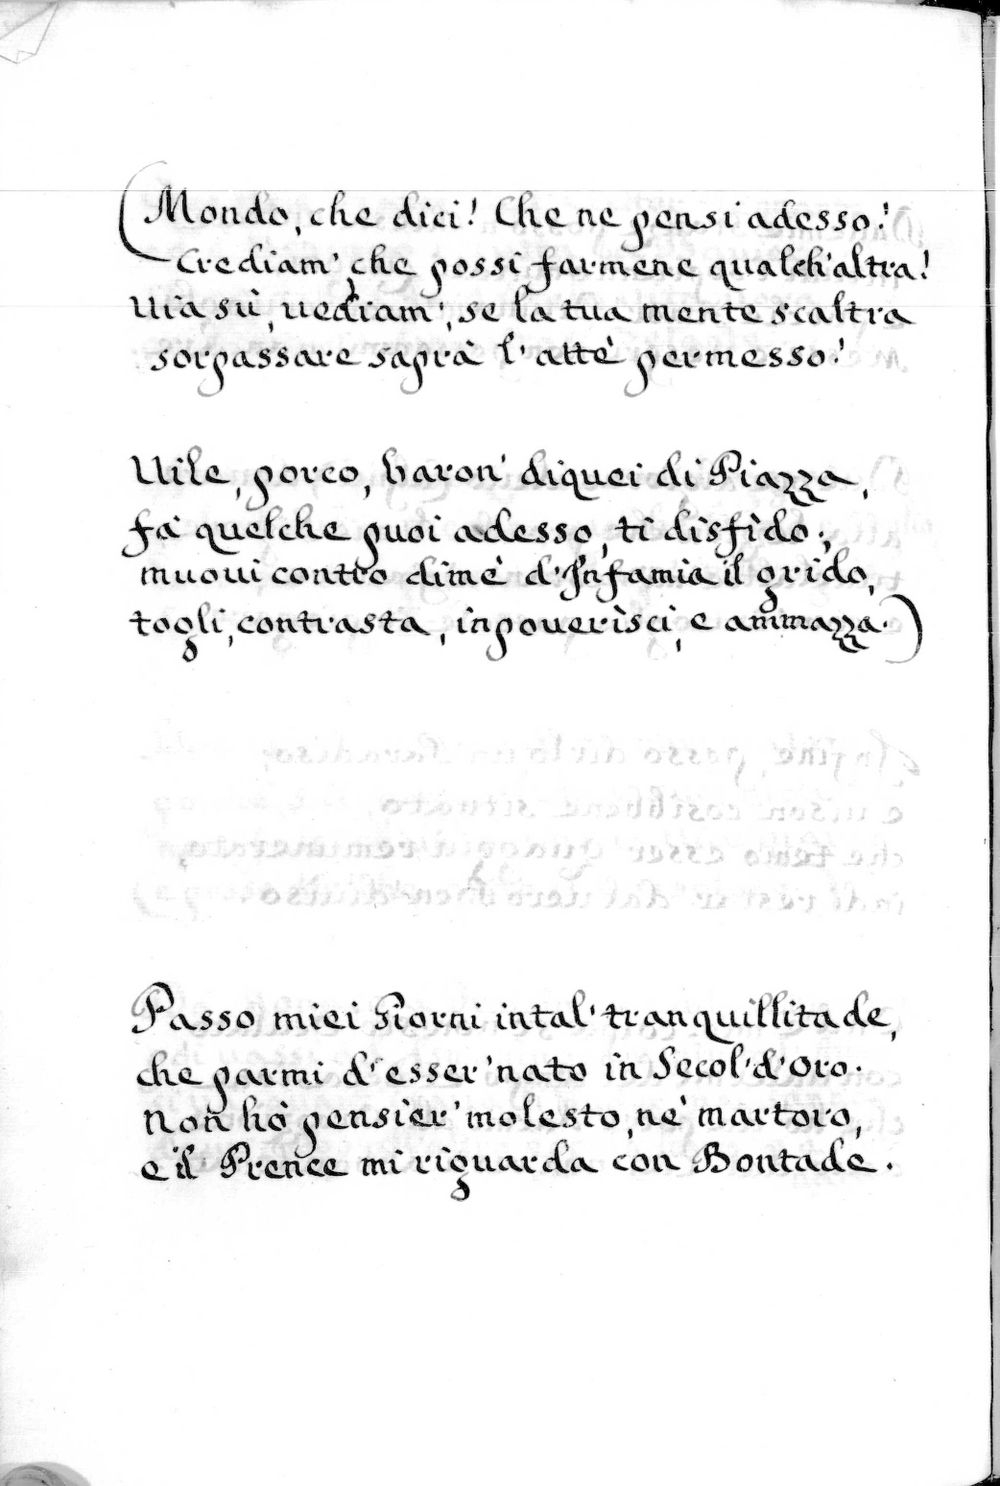 (Mondo, che dici! Che ne pensi adesso!
Crediam' che possi farmene qualch'altra!
Uia sù, uediam', se la tua mente scaltra
sorpassare saprà l'attè permesso!
Uile, porco, baron' diquei di Piazza,
fà quelche puoi adesso, ti disfido;
muoui contro dimè d'Infamia il grido,
togli, contrasta, inpouerisci, e ammazza.)
Passo miei Giorni intal' tranquillitade,
che parmi d'esser' nato in Secol' d'oro.
Non hò pensier' molesto, ne' martoro,
e il Prence mi riguarda con Bontade.